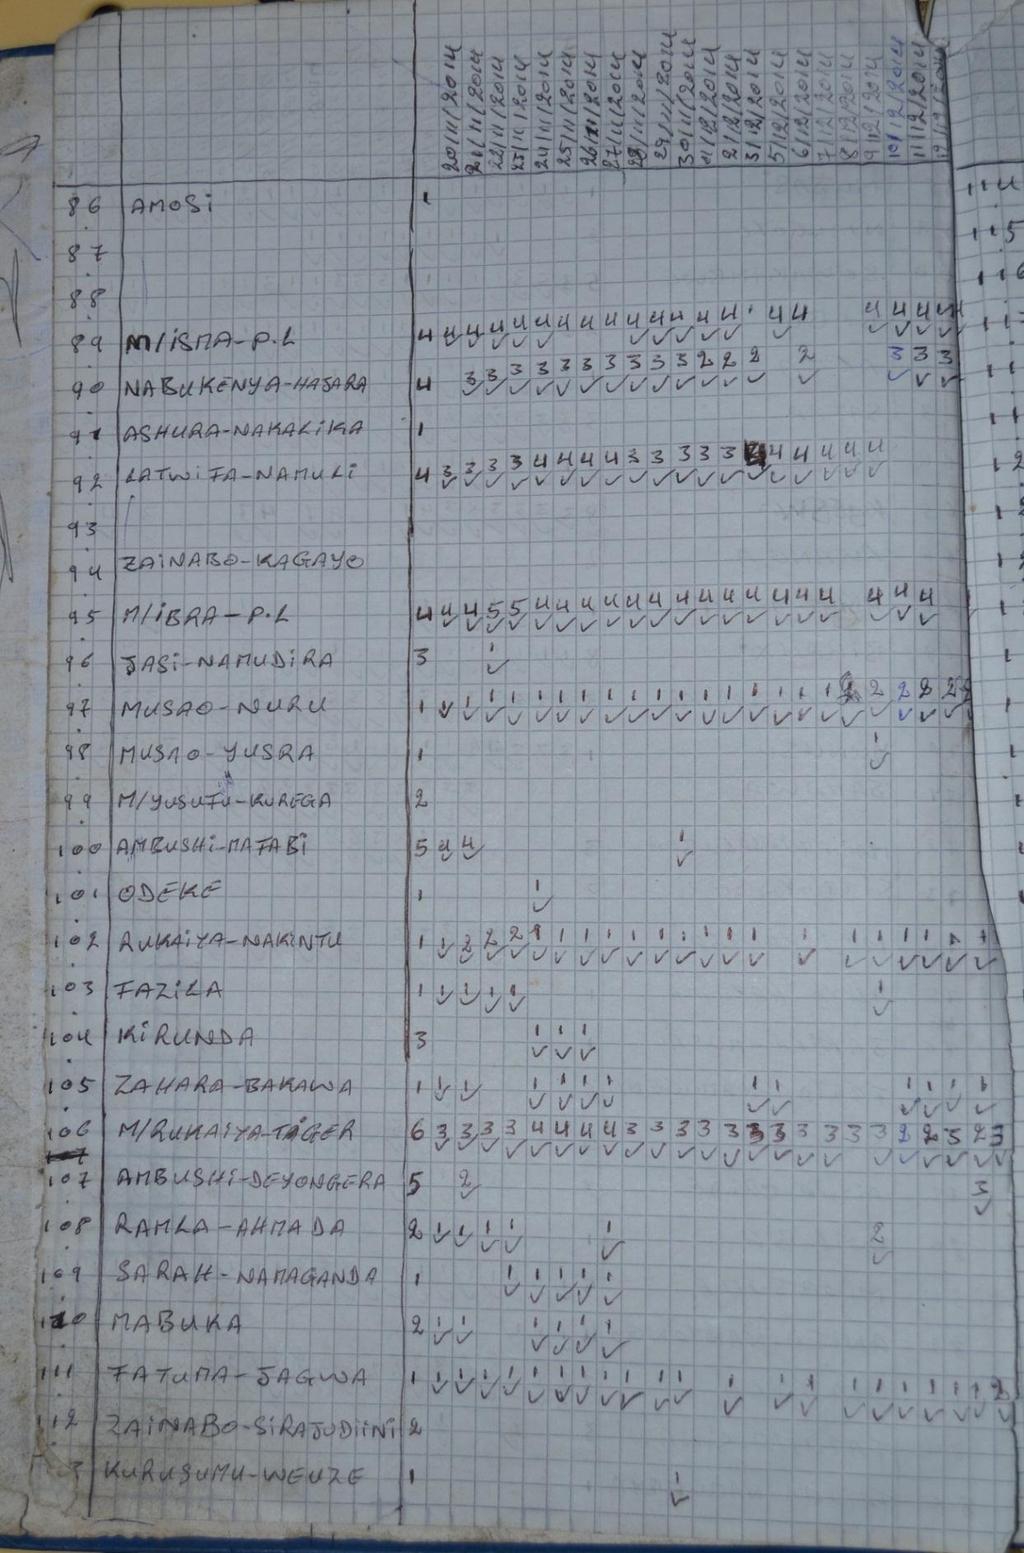 20/11/2014 21/11/2014 22/11/2014 23/11/2014 24/11/2014 25/11/2014 26/11/2014 27/11/2014 28/11/2014 29/11/2014 30/11/2014 01/12/2014 2/12/2014 3/12/2014 5/12/2014 6/12/2014 7/12/2014 8/12/2014 9/12/2014 10/12/2014 11/12/2014
86 AMOSI
87
88
89 M/ISMA-P.L 4 4 4 4 4 4 4 4 4 4 4 4 4 4 4 4 4 4 4 4
90 NABUKENYA-HAJARA 4 3 3 3 3 3 3 3 3 3 3 2 2 2 2 3 3 3
91 ASHURA-NAKALIKA 1
92 LATWIFA-NAMULI 4 3 3 3 3 4 4 4 4 3 3 3 3 3 4 4 4 4 4 4
93
94 ZAINABO-KAGAYO
95 M/IBRA-P.L 4 4 4 5 5 4 4 4 4 4 4 4 4 4 4 4 4 4 4 4 4
96 JASI-NAMUDIRA 3 1
97 MUSAO-NURU 1 1 1 1 1 1 1 1 1 1 1 1 1 1 1 1 1 2 2 2 2
98 MUSAO-YUSRA 1 1
99 M/YUSUFU-KUREGA 2
100 AMBUSHI-MATABI 5 4 4 1
101 ODEKE 1 1
102 RUKAIYA-NAKINTU 1 1 2 2 2 1 1 1 1 1 1 1 1 1 1 1 1 1 1 1 1 1
103 FAZILA 1 1 1 1 1 1
104 KIRUNDA 3 1 1 1
105 ZAHARA-BAKAWA 1 1 1 1 1 1 1 1 1 1 1 1 1
106 M/RUKAIYA-TAGER 6 3 3 3 3 4 4 4 4 3 3 3 3 3 3 3 3 3 3 3 2 2 3 2 3
107 AMBUSHI-DEYONGERA 5 2 3
108 RAMLA-AHMADA 2 1 1 1 1 1 2
109 SARAH-NAMAGANDA 1 1 1 1 1 1
110 MABUKA 2 1 1 1 1 1 1
111 FATUMA-JAGWA 1 1 1 1 1 1 1 1 1 1 1 1 1 1 1 1 1 1 1 1 1 2
112 ZAINABO-SIRAJUDIINI 2
3 KURUSUMU-WEUZE 1 1